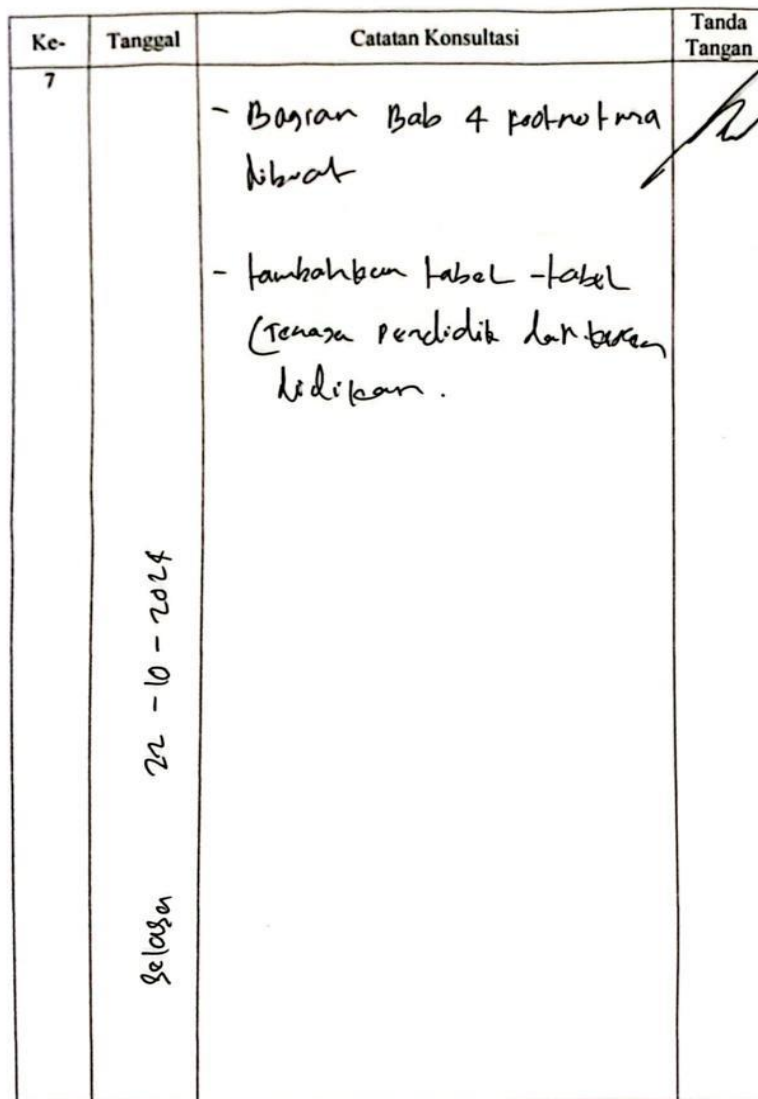 Ke-
Tanggal
Catatan Konsultasi
Tanda
Tangan
7
Selasa 22 - 10 - 2024
- Bagian Bab 4 footnotnya
dibuat
- tambahkan tabel - tabel
(Tenaga Pendidik dan
didikan.